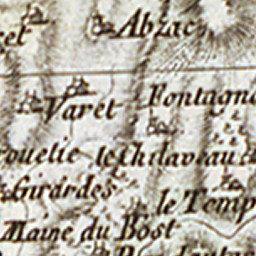 Abzac
Varet
Fontagn
ouelie le Chilavaud
Girardes
le Temp
Maine du Bost